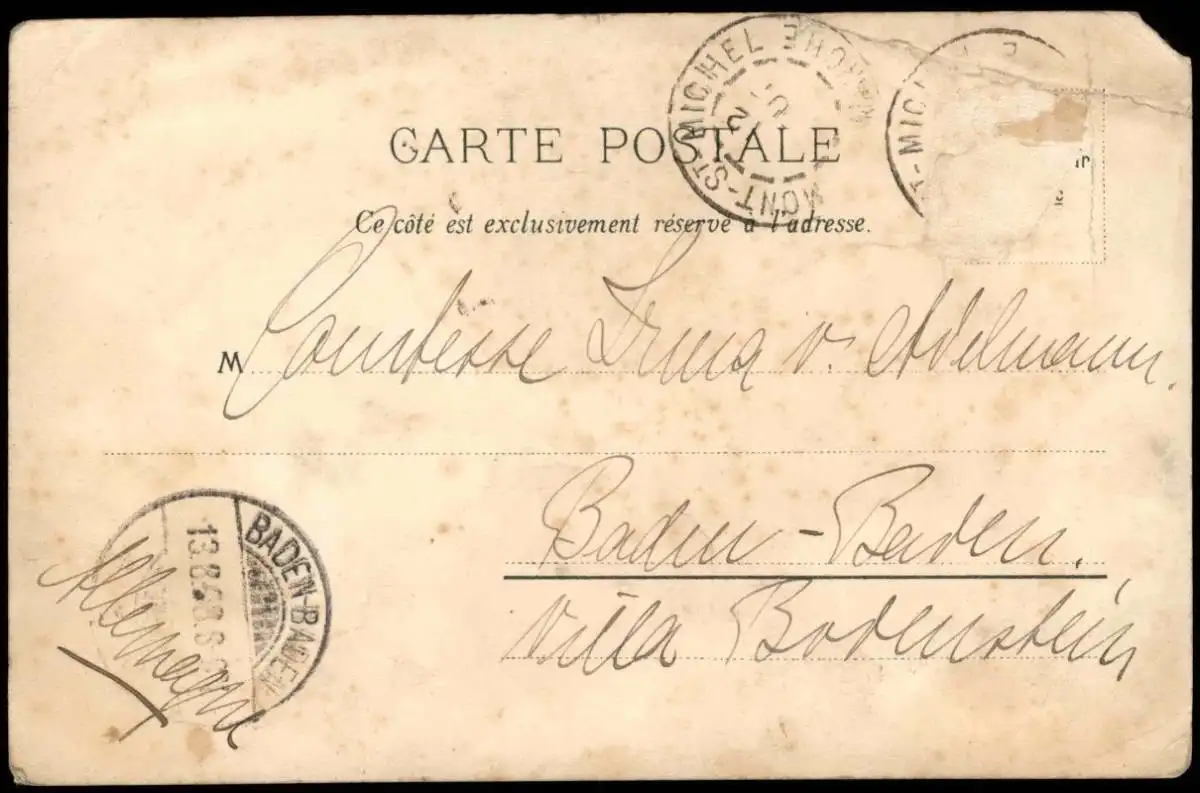 CARTE POSTALE
Ce côté est exclusivement réservé à l'adresse.
MONT-ST-MICHEL
T-MIC
M Comtesse Irma v. Adelmann.
Baden-Baden.
Villa Bodenstein
BADEN-BADEN
13.8.
Allemagne